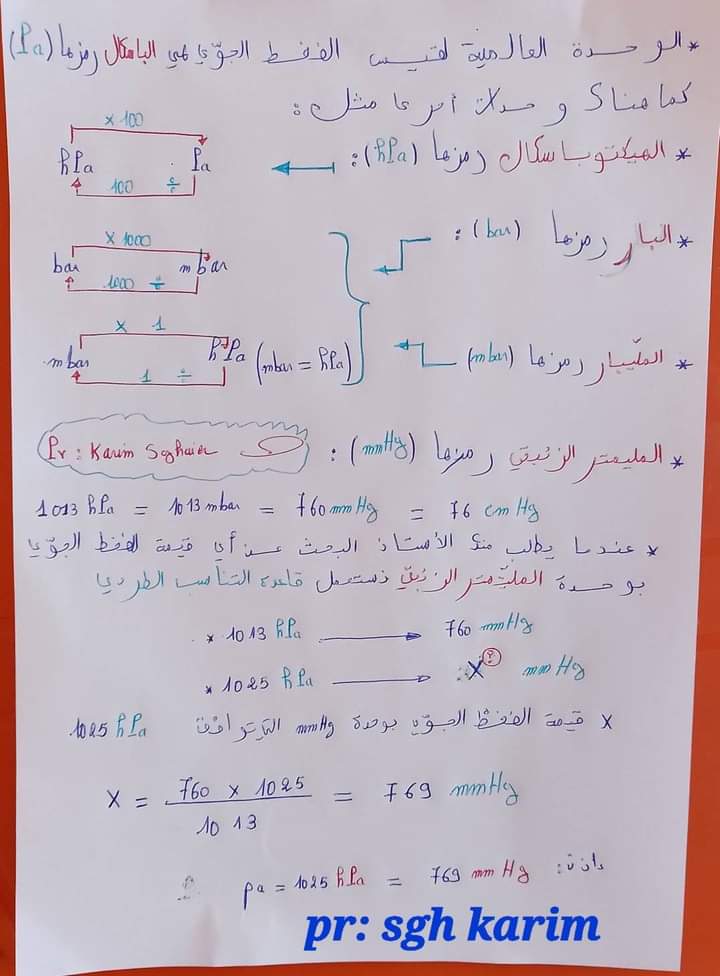 * الوحدة العالمية لقيس الضغط الجوّي هي الباسكال رمزها (Pa)
كما هناك وحدات أخرى مثل :
* الهيكتوباسكال رمزها (hPa) :
× 100
hPa Pa
100 ÷
* البار رمزها (bar) :
× 1000
bar mbar
1000 ÷
* الملّيبار رمزها (mbar)
× 1
mbar hPa (mbar = hPa)
1 ÷
* المليمتر الزئبقي رمزها (mmHg) :
Pr : Karim Sghaier
1013 hPa = 1013 mbar = 760 mmHg = 76 cmHg
* عندما يطلب منك الأستاذ البحث عن أي قيمة الضغط الجوّي
بوحدة المليمتر الزئبقي نستعمل قاعدة التناسب الطردي
* 1013 hPa → 760 mmHg
* 1025 hPa → X ? mmHg
X قيمة الضغط الجوّي بوحدة mmHg التي توافق 1025 hPa
X = 760 x 1025 / 1013 = 769 mmHg
إذن : pa = 1025 hPa = 769 mm Hg
pr: sgh karim